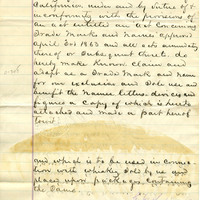 California under and by virtue of &
in conformity with the provisions of
an act entitled an act Concerning
Trade Marks and Names approved
April 3rd 1863 and all acts amendatory
thereof or Subsequent thereto. do
hereby make Known claim and
adapt as a Trade Mark and name
for our exclusive and Sole use and
benefit the Names letters devices and
figures a copy of which is hereto
attached and made a part hereof
towit.
and which is to be used in connec
tion with whiskey Sold by us and
placed upon packages containing
the Same.